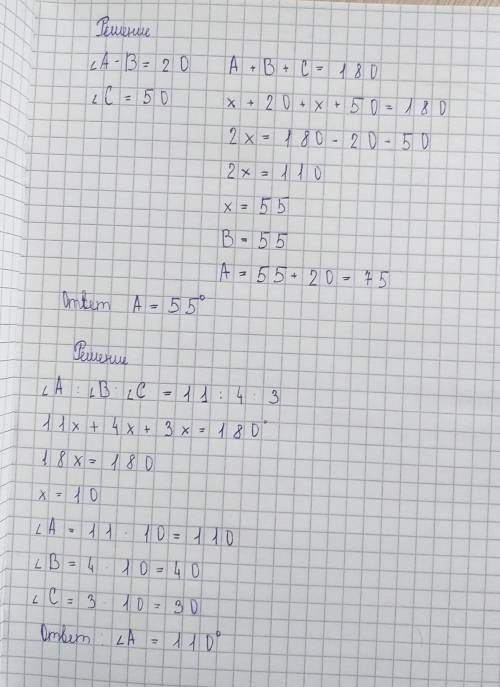 Решение
∠A - B = 20
∠C = 50
A + B + C = 180
x + 20 + x + 50 = 180
2x = 180 - 20 - 50
2x = 110
x = 55
B = 55
A = 55 + 20 = 75
Ответ A = 55°
Решение
∠A : ∠B : ∠C = 11 : 4 : 3
11x + 4x + 3x = 180°
18x = 180
x = 10
∠A = 11 · 10 = 110
∠B = 4 · 10 = 40
∠C = 3 · 10 = 30
Ответ: ∠A = 110°